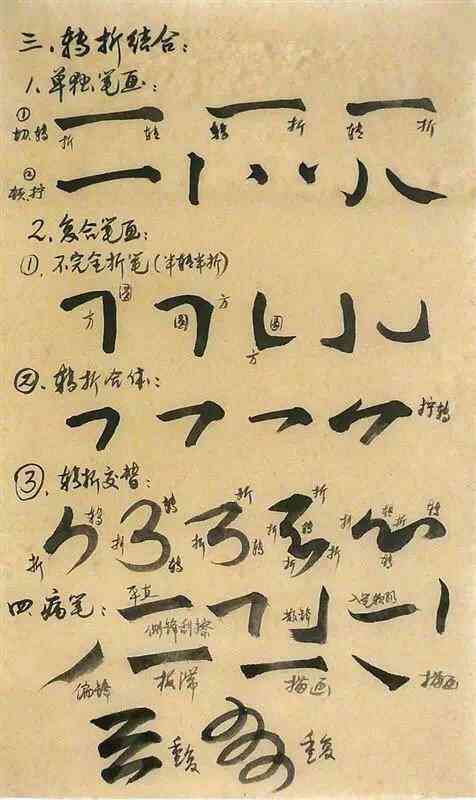 三、转折结合：
1、单独笔画：
① 一 一 一
切、转 折 转 转 折 转 折
② 顿、拧
2、复合笔画：
①、不完全折笔（半转半折）
方 圆 圆 方 圆 方
②、转折合体：
拧转
③、转折交替：
折 转 折 转 转 折 折 转 折 折 转 折 折 转 折 转 转
四、病笔：平直 侧锋刮擦 散锋
偏锋 板滞 描画 描画
重复 重复